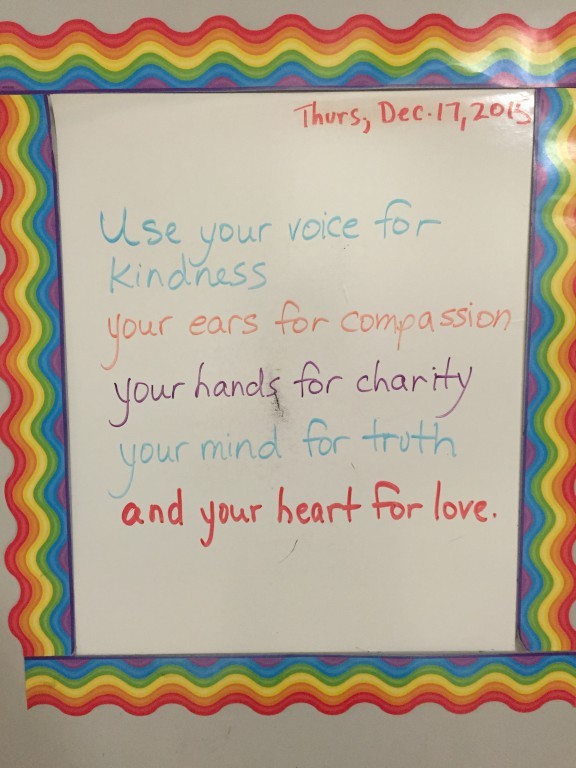 Thurs, Dec.17, 2015
Use your voice for
kindness
your ears for compassion
your hands for charity
your mind for truth
and your heart for love.